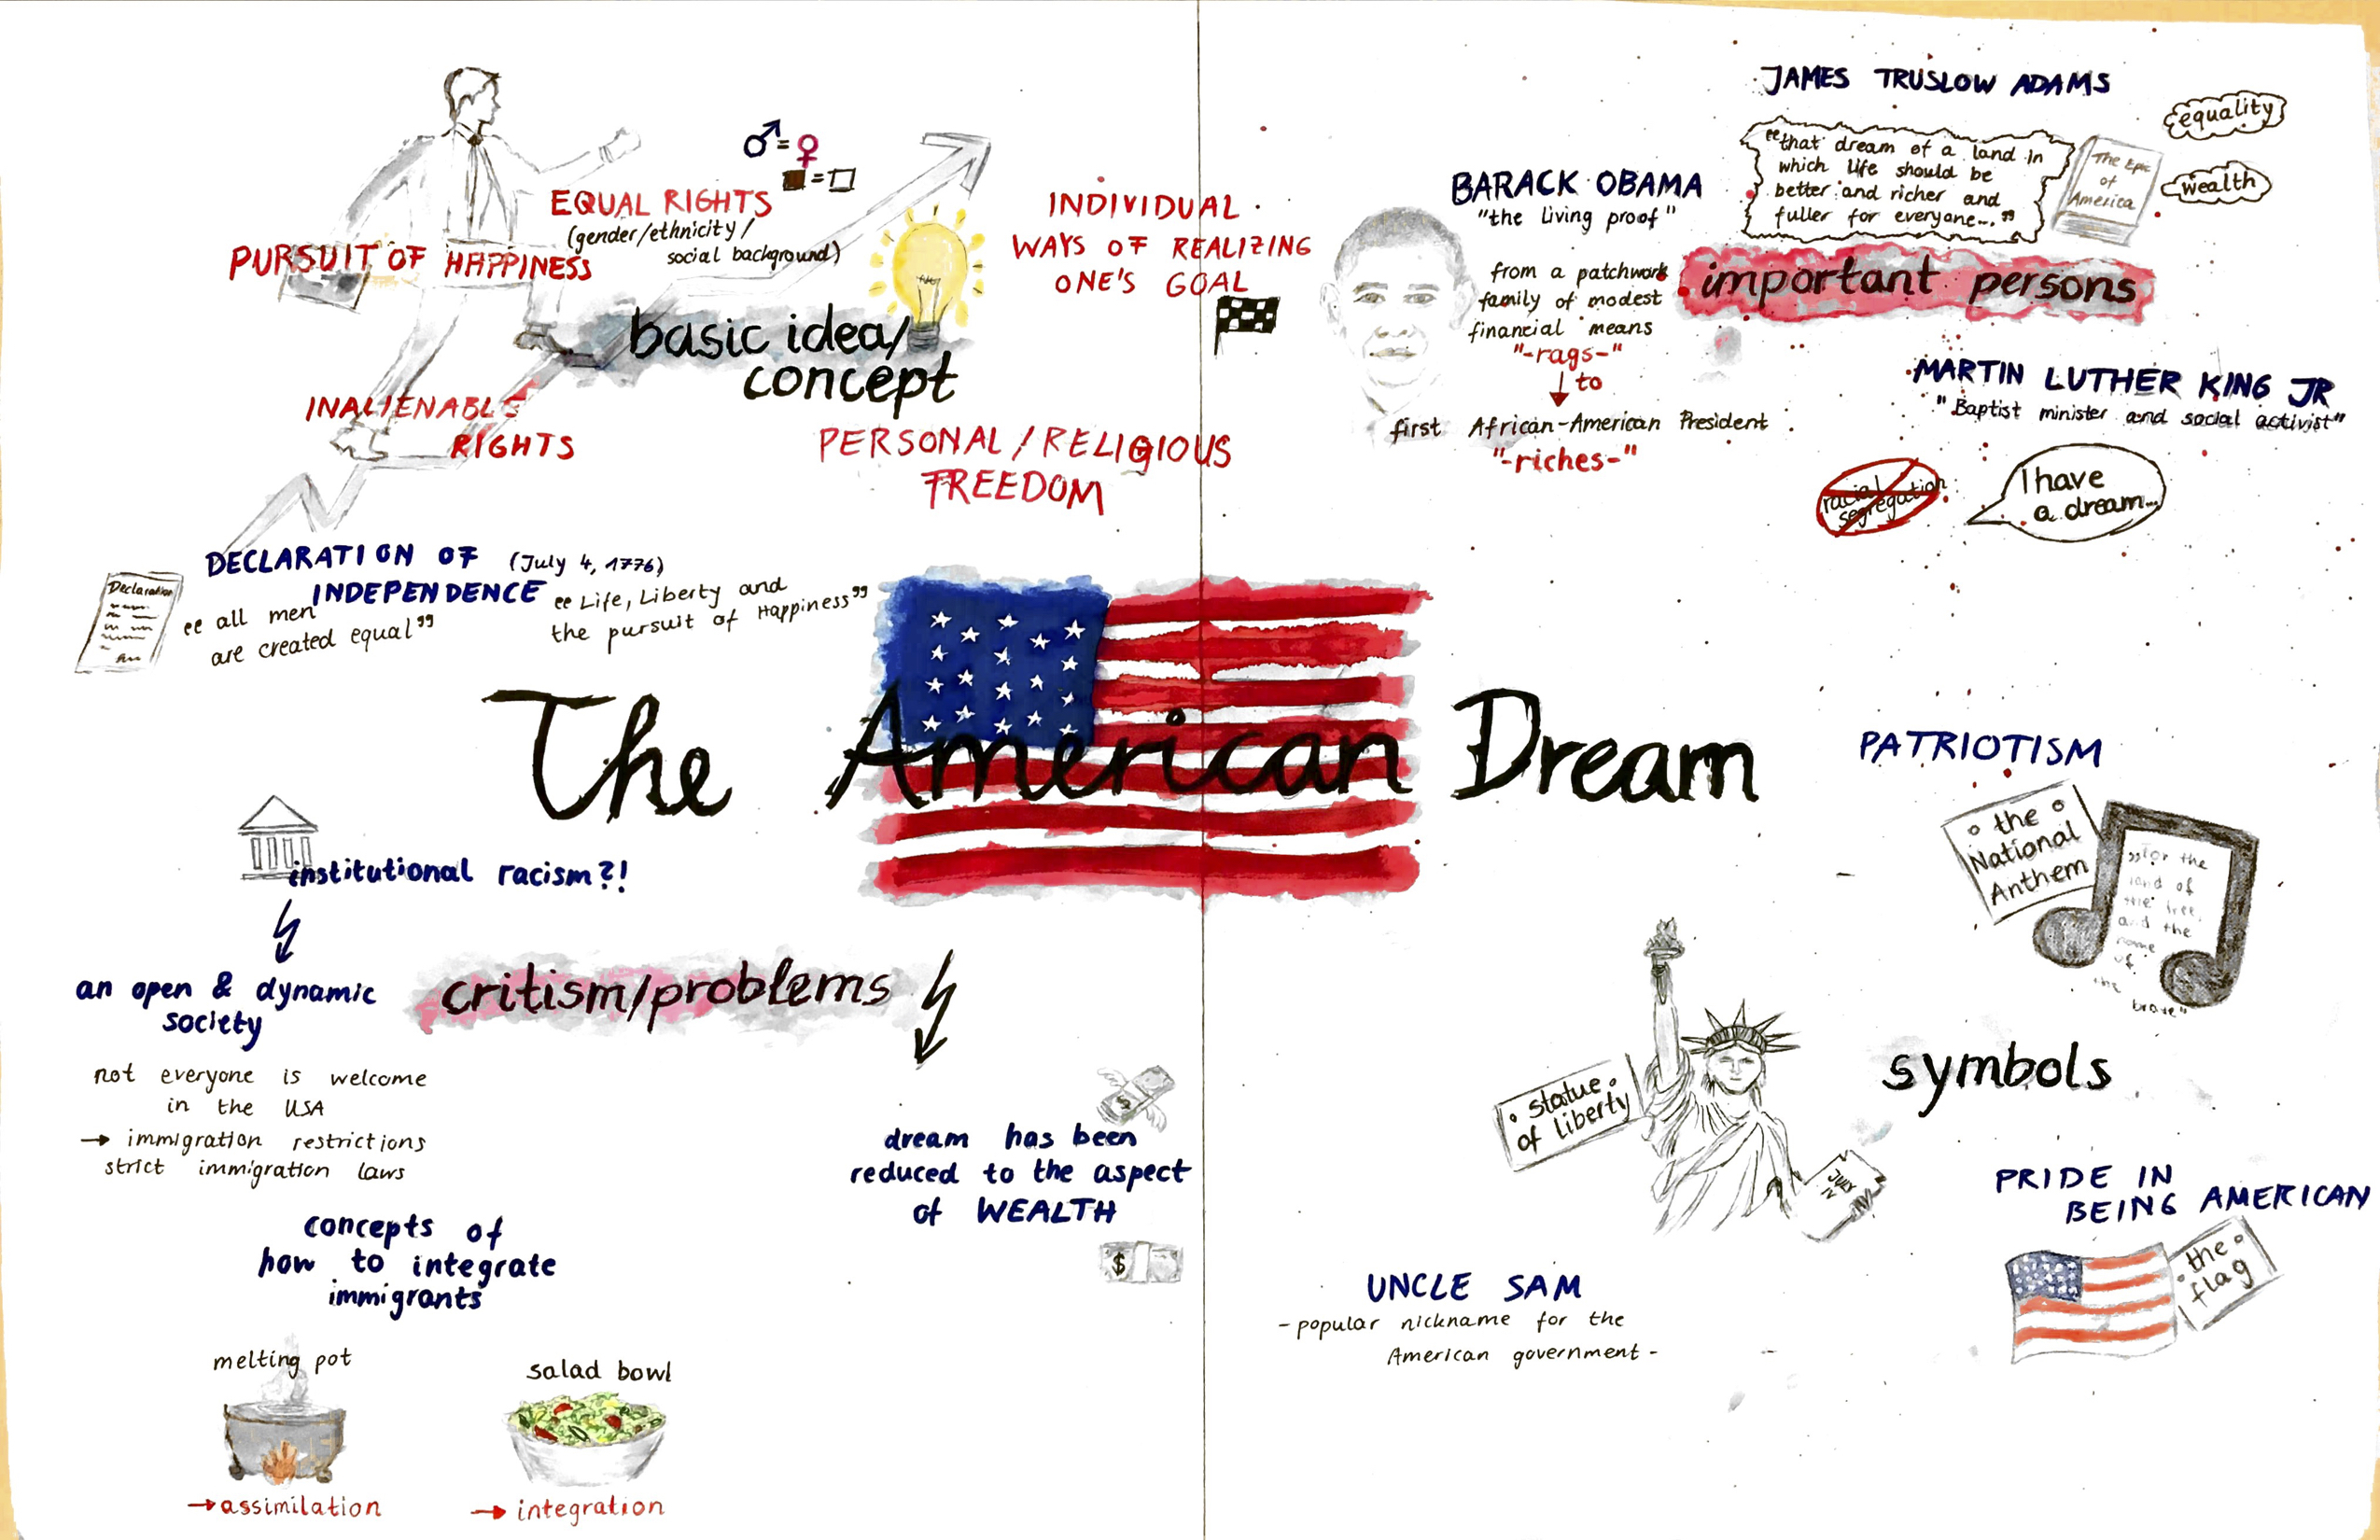 The American Dream
basic idea/
concept
PURSUIT OF HAPPINESS
EQUAL RIGHTS
(gender/ethnicity/
social background)
♂=♀
INDIVIDUAL
WAYS OF REALIZING
ONE'S GOAL
INALIENABLE
RIGHTS
PERSONAL/RELIGIOUS
FREEDOM
DECLARATION OF (July 4, 1776)
INDEPENDENCE
Declaration
“all men
are created equal”
“Life, Liberty and
the pursuit of Happiness”
important persons
JAMES TRUSLOW ADAMS
“that dream of a land in
which life should be
better and richer and
fuller for everyone...”
The Epic
of
America
equality
wealth
BARACK OBAMA
"the living proof"
from a patchwork
family of modest
financial means
"-rags-"
↓ to
first African-American President
"-riches-"
MARTIN LUTHER KING JR
"Baptist minister and social activist"
racial
segregation
I have
a dream...
critism/problems
institutional racism?!
an open & dynamic
society
not everyone is welcome
in the USA
→ immigration restrictions
strict immigration laws
concepts of
how to integrate
immigrants
melting pot
→assimilation
salad bowl
→ integration
dream has been
reduced to the aspect
of WEALTH
$
$
symbols
PATRIOTISM
the
National
Anthem
„For the
land of
the free,
and the
of
the
brave"
statue
of liberty
JULY
PRIDE IN
BEING AMERICAN
the
flag
UNCLE SAM
-popular nickname for the
American government-